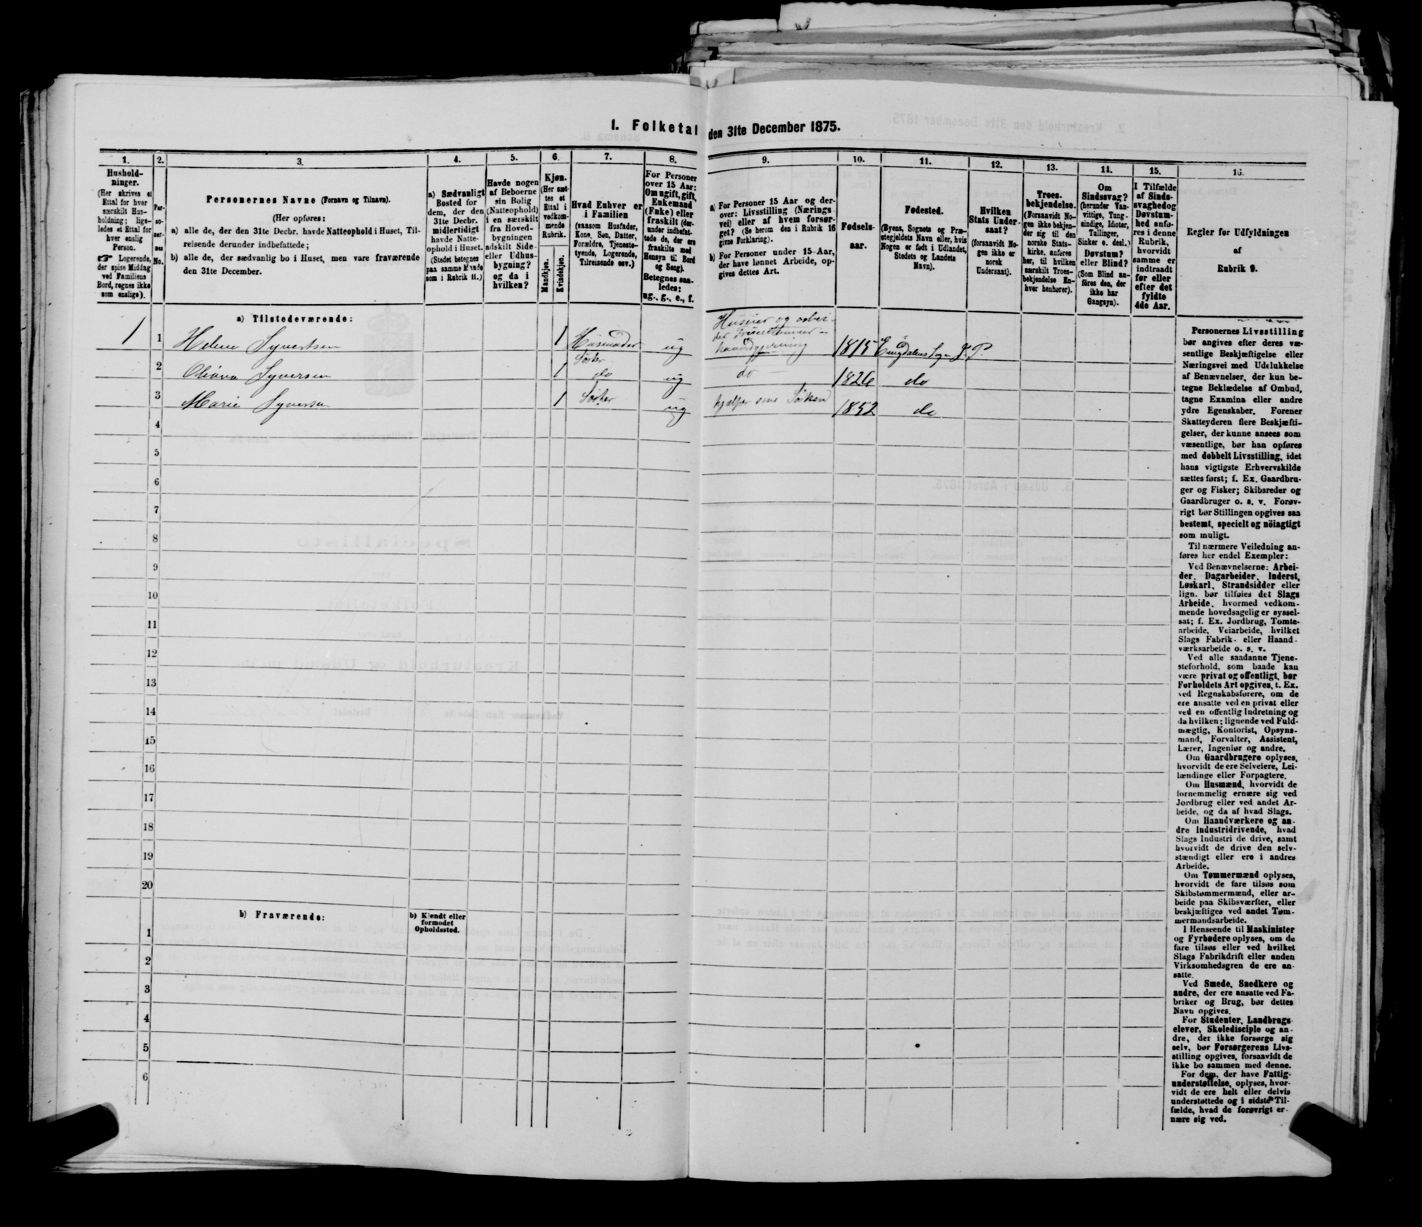 1. Folketal den 31te December 1875.
1. 2. 3. 4. 5. 6. 7. 8. 9. 10. 11. 12. 13. 14. 15. 16.
Hushold-
ninger.
(Her skrives et
Ettal for hver
særskilt Hus-
holdning; lige-
ledes et Ettal for
hver enslig
Person.
☞ Logerende,
der spise Middag
ved Familiens
Bord, regnes ikke
som enslige).
Per-
so-
ner-
nes
No.
Personernes Navne (Fornavn og Tilnavn).
(Her opføres:
a) alle de, der den 31te Decbr. havde Natteophold i Huset, Til-
reisende derunder indbefattede;
b) alle de, der sædvanlig bo i Huset, men vare fraværende
den 31te December.
a) Sædvanligt
Bosted for
dem, der den
31te Decbr.
midlertidigt
havde Natte-
ophold i Huset.
(Stedet betegnes
paa samme Maade
som i Rubrik 11.)
Havde nogen
af Beboerne
sin Bolig
(Natteophold)
i en særskilt
fra Hoved-
bygningen
adskilt Side-
eller Udhus-
bygning?
og da i
hvilken?
Kjøn.
(Her sæt-
tes et
Ettal i
vedkom-
mende
Rubrik.
Mandkjøn.
Kvindekjøn.
Hvad Enhver er
i Familien
(saasom Husfader,
Kone, Søn, Datter,
Forældre, Tjeneste-
tyende, Logerende,
Tilreisende osv.)
For Personer
over 15 Aar:
Om ugift, gift,
Enkemand
(Enke) eller
fraskilt (der-
under indbefat-
tede de, der ere
fraskilte med
Hensyn til Bord
og Seng).
Betegnes saa-
ledes:
ug., g., e., f.
a) For Personer 15 Aar og der-
over: Livsstilling (Nærings
vei) eller af hvem forsør-
get? (Se herom den i Rubrik 16
givne Forklaring).
b) For Personer under 15 Aar,
der have lønnet Arbeide, op-
gives dettes Art.
Fødsels-
aar.
Fødested.
(Byens, Sognets og Præ-
stegjeldets Navn eller, hvis
Nogen er født i Udlandet,
Stedets og Landets
Navn).
Hvilken
Stats Under-
saat?
(forsaavidt No-
gen ikke er
norsk
Undersaat).
Troes-
bekjendelse.
(Forsaavidt No-
gen ikke bekjen-
der sig til den
norske Stats-
kirke, anføres
her, til hvilken
særskilt Troes-
bekjendelse En-
hver henhører).
Om
Sindssvag?
(herunder Van-
vittige, Tung-
sindige, Idioter,
Tullinger,
Sinker o. desl.)
Døvstum?
eller Blind?
(Som Blind an-
føres den, der
ikke har
Gangsyn).
I Tilfælde
af Sinds-
svaghed og
Døvstum-
hed anfø-
res i denne
Rubrik,
hvorvidt
samme er
indtraadt
før eller
efter det
fyldte
4de Aar.
Regler for Udfyldningen
af
Rubrik 9.
a) Tilstedeværende:
1 1 Helene Syvertsen 1 Husmoder ug Huseier og haandgjerning 1815 Sogn P
2 Oliana Syversen 1 Søster do ug do 1826 do
3 Marie Syversen 1 Søster ug hjelper sine Søsken 1852 do
4
5
6
7
8
9
10
11
12
13
14
15
16
17
18
19
20
b) Fraværende:
b) Kjendt eller
formodet
Opholdssted.
1
2
3
4
5
6
Personernes Livsstilling
bør angives efter deres væ-
sentlige Beskjæftigelse eller
Næringsvei med Udelukkelse
af Benævnelser, der kun be-
tegne Beklædelse af Ombud,
tagne Examina eller andre
ydre Egenskaber. Forener
Skatteyderen flere Beskjæfti-
gelser, der kunne ansees som
væsentlige, bør han opføres
med dobbelt Livsstilling, idet
hans vigtigste Erhvervskilde
sættes først; f. Ex. Gaardbru-
ger og Fisker; Skibsreder og
Gaardbruger o. s. v. Forøv-
rigt bør Stillingen opgives saa
bestemt, specielt og nöiagtigt
som muligt.
Til nærmere Veiledning an-
føres her endel Exempler:
Ved Benævnelserne: Arbei-
der, Dagarbeider, Inderst,
Løskarl, Strandsidder eller
lign. bør tilføies det Slags
Arbeide, hvormed vedkom-
mende hovedsagelig er syssel-
sat; f. Ex. Jordbrug, Tomte-
arbeide, Veiarbeide, hvilket
Slags Fabrik- eller Haand-
værksarbeide o. s. v.
Ved alle saadanne Tjene-
steforhold, som baade kan
være privat og offentligt, bør
Forholdets Art opgives, t. Ex.
ved Regnskabsførere, om de
ere ansatte ved en privat eller
ved en offentlig Indretning og
da hvilken; lignende ved Fuld-
mægtig, Kontorist, Opsyns-
mand, Forvalter, Assistent,
Lærer, Ingeniør og andre.
Om Gaardbrugere oplyses,
hvorvidt de ere Selveiere, Lei-
lændinge eller Forpagtere.
Om Husmænd, hvorvidt de
fornemmelig ernære sig ved
Jordbrug eller ved andet Ar-
beide, og da af hvad Slags.
Om Haandværkere og an-
dre Industridrivende, hvad
Slags Industri de drive, samt
hvorvidt de drive den selv-
stændigt eller ere i andres
Arbeide.
Om Tømmermænd oplyses,
hvorvidt de fare tilsøs som
Skibstømmermænd, eller ar-
beide paa Skibsværfter, eller
beskjæftiges ved andet Tøm-
mermandsarbeide.
I Henseende til Maskinister
og Fyrbødere oplyses, om de
fare tilsøs eller ved hvilket
Slags Fabrikdrift eller anden
Virksomhedsgren de ere an-
satte.
Ved Smede, Snedkere og
andre, der ere ansatte ved Fa-
briker og Brug, bør dettes
Navn opgives.
For Studenter, Landbrugs-
elever, Skoledisciple og an-
dre, der ikke forsørge sig
selv, bør Forsørgerens Livs-
stilling opgives, forsaavidt de
ikke bo sammen med denne.
For dem, der have Fattig-
understøttelse, oplyses, hvor-
vidt de ere helt eller delvis
understøttede og i sidste Til-
fælde, hvad de forøvrigt er-
nære sig ved.